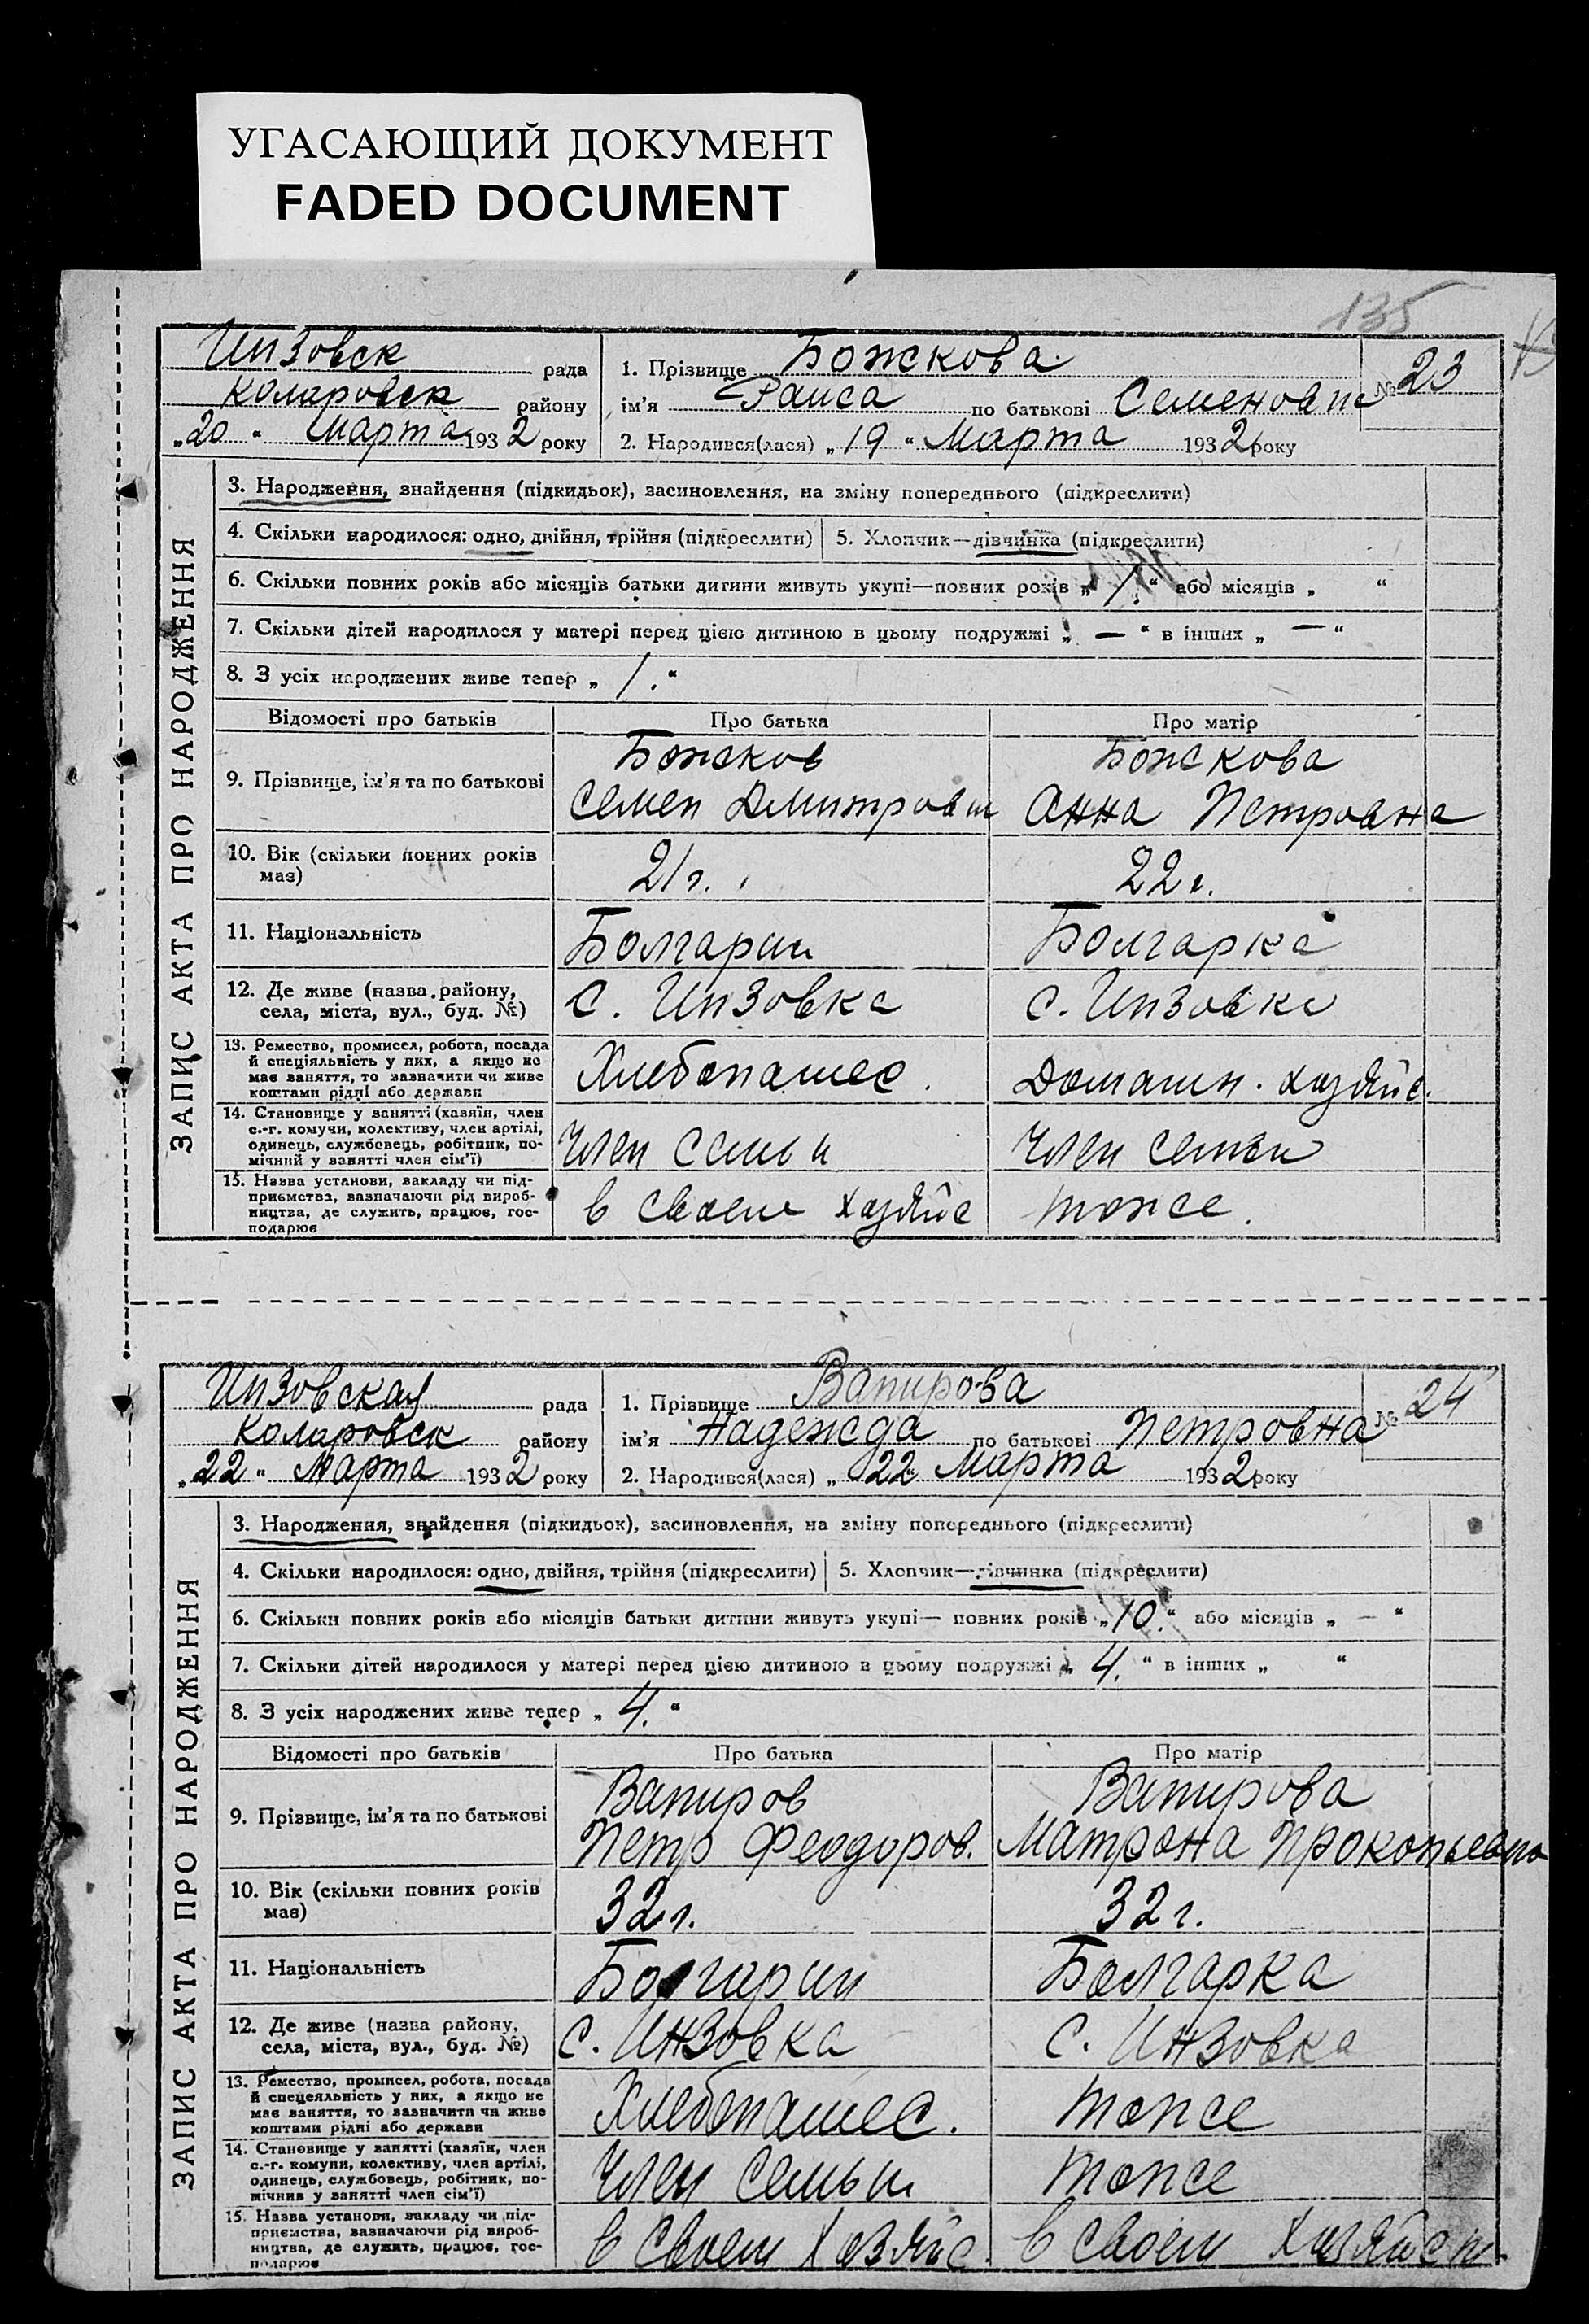 УГАСАЮЩИЙ ДОКУМЕНТ
FADED DOCUMENT
135
Инзовск рада
Коларовск району
„20 “ Марта 1932 року
1. Прізвище Божкова
ім'я Раиса по батькові Семеновн
2. Народився(лася) „19 “ Марта 1932 року
№ 23
ЗАПИС АКТА ПРО НАРОДЖЕННЯ
3. Народження, знайдення (підкидьок), засиновлення, на зміну попереднього (підкреслити)
4. Скільки народилося: одно, двійня, трійня (підкреслити) 5. Хлопчик—дівчинка (підкреслити)
6. Скільки повних років або місяців батьки дитини живуть укупі—повних років „ 1. “ або місяців „ “
7. Скільки дітей народилося у матері перед цією дитиною в цьому подружжі „ — “ в інших „ — “
8. З усіх народжених живе тепер „ 1. “
Відомості про батьків Про батька Про матір
9. Прізвище, ім'я та по батькові
Божков
Семен Дмитров
Божкова
Анна Петровна
10. Вік (скільки повних років
має)
21 г.
22 г.
11. Національність Болгарин Болгарка
12. Де живе (назва району,
села, міста, вул., буд. №)
с. Инзовка
с. Инзовка
13. Ремество, промисел, робота, посада
й спеціяльність у них, а якщо не
має заняття, то зазначити чи живе
коштами рідні або держави
Хлебопашес.
Домашн. хозяйс.
14. Становище у занятті (хазяїн, член
с.-г. комуни, колективу, член артілі,
одинець, службовець, робітник, по-
мічний у занятті член сім'ї)
Член семьи
Член семьи
15. Назва установи, закладу чи під-
приємства, зазначаючи рід вироб-
ництва, де служить, працює, гос-
подарює
в своем хозяйс
тоже.
Инзовская рада
Коларовск району
„22 “ Марта 1932 року
1. Прізвище Вапирова
ім'я Надежда по батькові Петровна
2. Народився(лася) „ 22 “ Марта 1932 року
№ 24
ЗАПИС АКТА ПРО НАРОДЖЕННЯ
3. Народження, знайдення (підкидьок), засиновлення, на зміну попереднього (підкреслити)
4. Скільки народилося: одно, двійня, трійня (підкреслити) 5. Хлопчик—дівчинка (підкреслити)
6. Скільки повних років або місяців батьки дитини живуть укупі— повних років „10. “ або місяців „ — “
7. Скільки дітей народилося у матері перед цією дитиною в цьому подружжі „ 4. “ в інших „ “
8. З усіх народжених живе тепер „ 4. “
Відомості про батьків Про батька Про матір
9. Прізвище, ім'я та по батькові
Вапиров
Петр Феодоров.
Вапирова
Матрона Прокопьевна
10. Вік (скільки повних років
має)
32 г.
32 г.
11. Національність Болгарин Болгарка
12. Де живе (назва району,
села, міста, вул., буд. №)
с. Инзовка
с. Инзовка
13. Ремество, промисел, робота, посада
й спецеяльність у них, а якщо не
має заняття, то зазначити чи живе
коштами рідні або держави
Хлебопашес.
тоже
14. Становище у занятті (хазяїн, член
с.-г. комуни, колективу, член артілі,
одинець, службовець, робітник, по-
мічний у занятті член сім'ї)
Член семьи
тоже
15. Назва установи, закладу чи під-
приємства, зазначаючи рід вироб-
ництва, де служить, працює, гос-
подарює
в своем хозяйс.
в своем хозяйст.